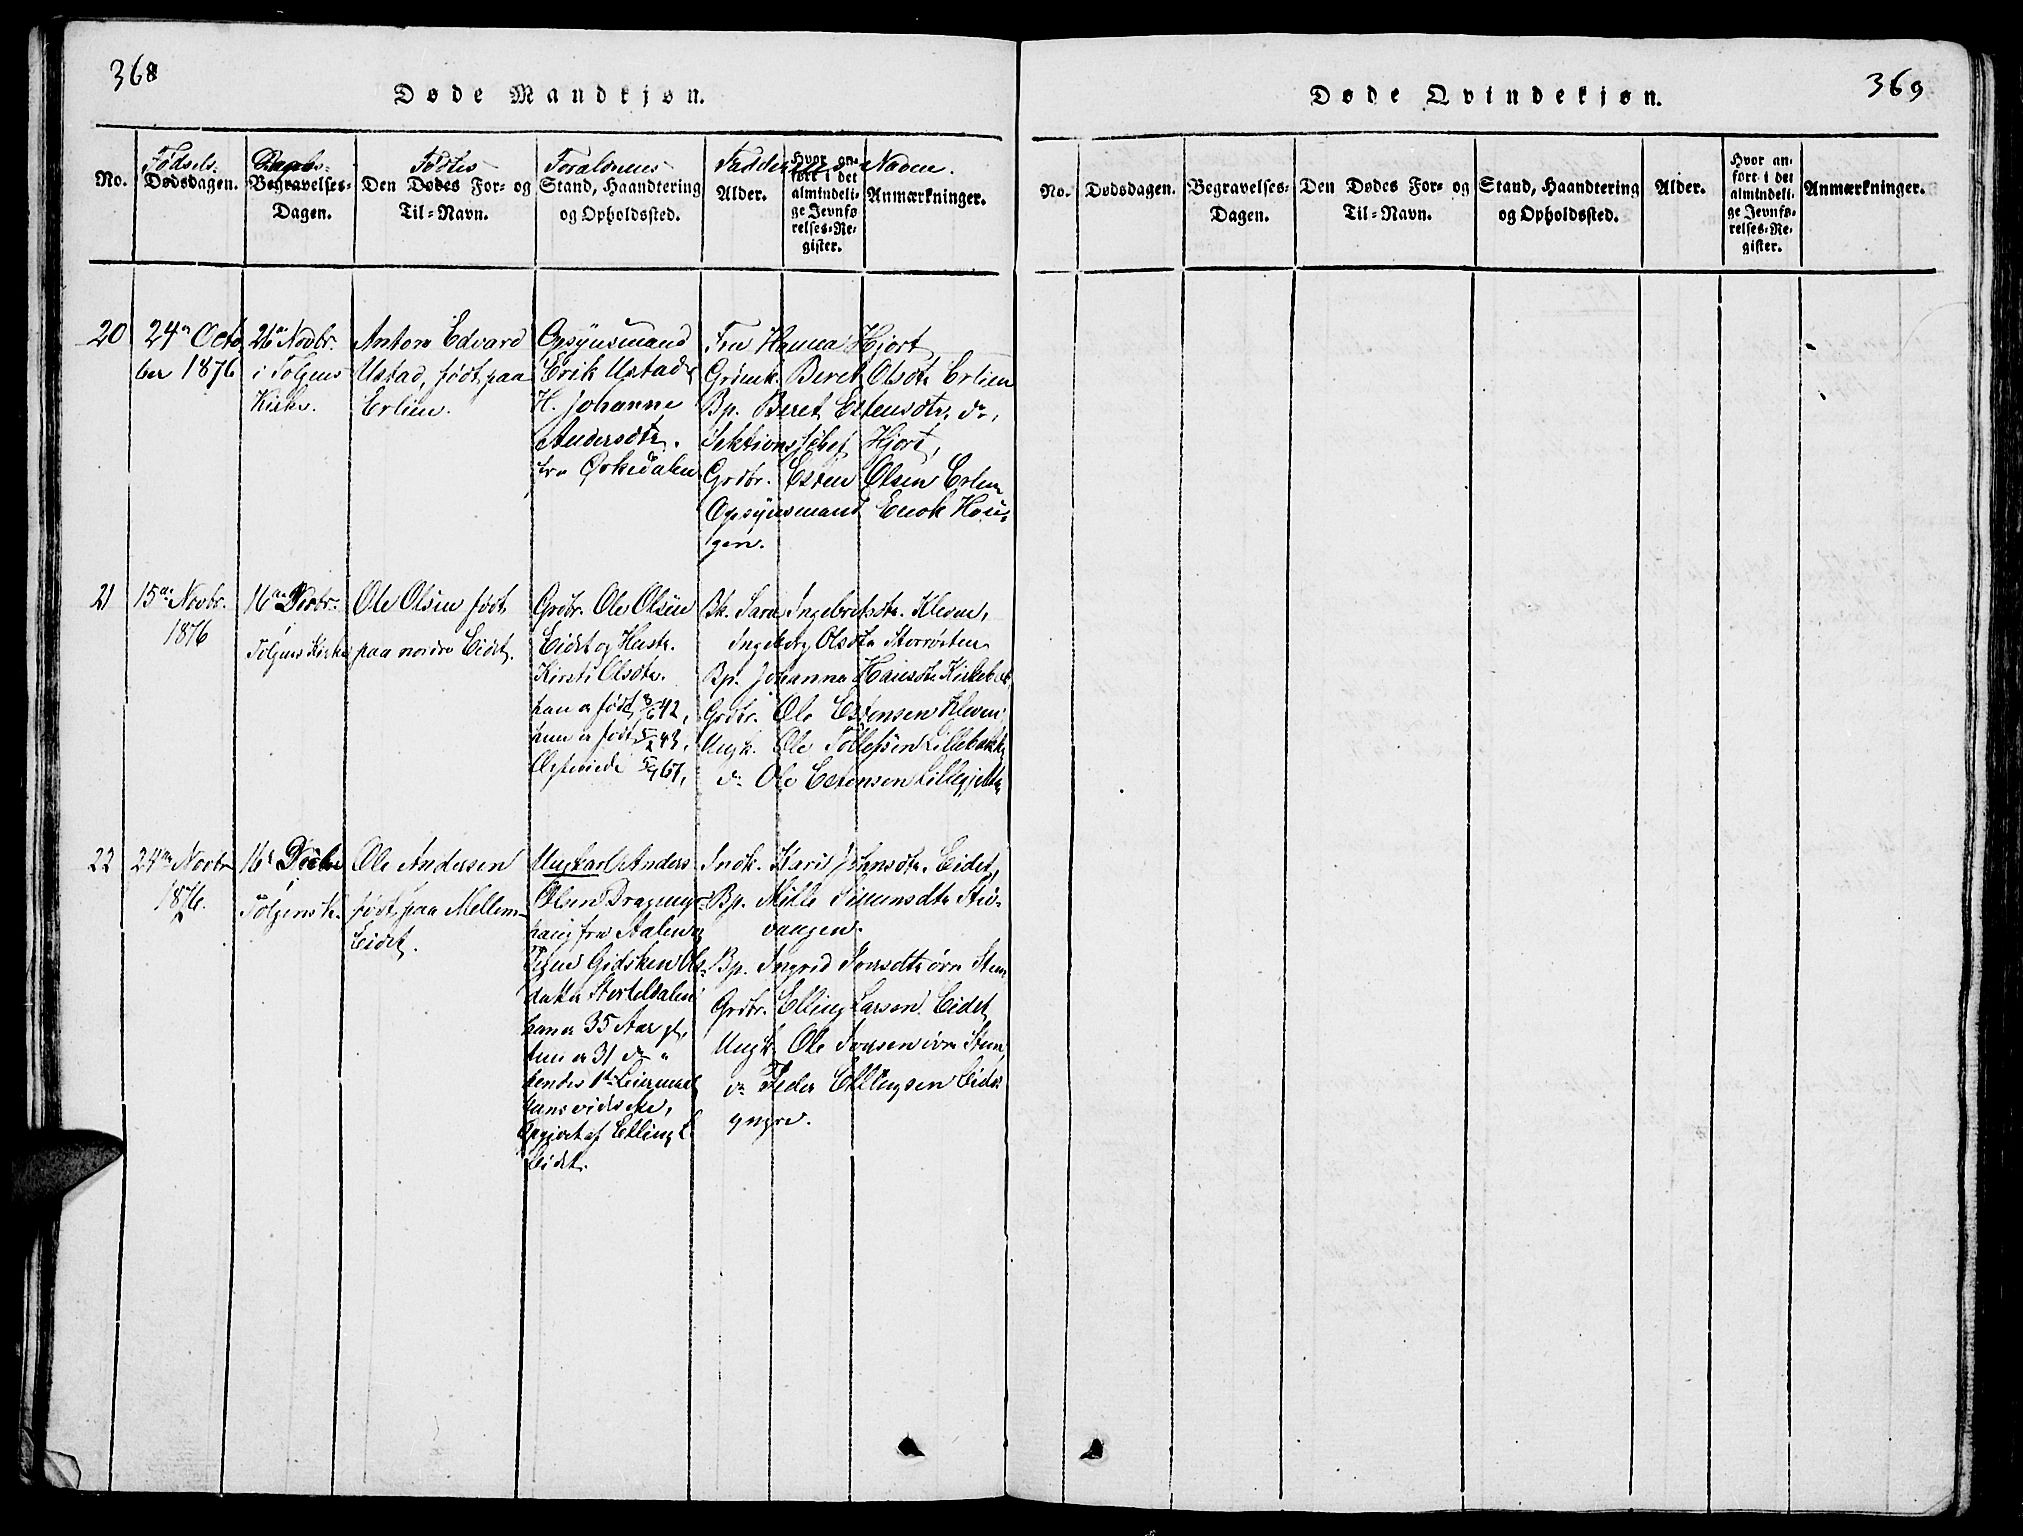 368
Døde Mandkjøn.
No.
Fødsels-
Dødsdagen.
Daabs-
Begravelses-
Dagen.
Fødtes
Den Dødes For- og
Til-Navn.
Forældrenes
Stand, Haandtering
og Opholdssted.
Faddernes Navne.
Alder.
Hvor an-
ført i det
almindeli-
ge Jevnfø-
relses-Re-
gister.
Anmærkninger.
20
24de Octo
ber 1876
26de Novbr.
i Tolgens
Kirke.
Anton Edvard
Ustad, født paa
Erlien.
Opsynsmand
Erik Ustad &
H. Johanne
Andersdtr.
fra Ørkedalen
Fru Hanna Hjort
Grdmk. Beret Olsdtr Erlien
Bp. Beret Estensdtr, do,
Sektionschef Hjort,
Grdbr. Esten Olsen Erlien
Opsynsmand Enok Hau-
gen.
21
15de Novbr.
1876
16de Decbr.
Tolgens Kirke
Ole Olsen født
paa nordre Eidet.
Grdbr. Ole Olsen
Eidet og Hustr.
Kirsti Olsdtr.
han er født 3/6 42,
hun er født 5/2 43,
Ægteviede 5/9 67,
Bk. Sara Ingebrigtsdtr. Kleven,
Ingeborg Olsdtr Storrøsten
Bp. Johanna Hansdtr Kirkebek,
Grdbr. Ole Estensen Kleven,
Ungk. Ole Tollefsen Lillebakke
do Ole Estensen Lillegjelten
22
24de Novbr
1876.
16d Decbr
Tolgens K.
Ole Andersen
født paa Mellem-
Eidet.
Ungkarl Anders
Olsen Dragmyr-
haug fra Aalen og
Pigen Gidsken Ols-
datter Storteldalen
han er 35 Aar gl,
hun er 31 do "
hendes 1ste Leiermaal,
hans vides ikke,
Opgivet af Elling L.
Eidet.
Indk. Kari Johnsdtr. Eidet,
Bp. Mille Simensdtr Stu-
vangen.
Bp. Ingrid Jonsdtr øvre Steen
Grdbr. Elling Larsen Eidet
Ungk. Ole Jonsen øvre Steen,
do Peder Ellingsen Eidet
yngre.
369
Døde Qvindekjøn.
No.
Dødsdagen.
Begravelses-
Dagen.
Den Dødes For- og
Til-Navn.
Stand, Haandtering
og Opholdssted.
Alder.
Hvor an-
ført i det
almindeli-
ge Jevnfø-
relses-Re-
gister.
Anmærkninger.